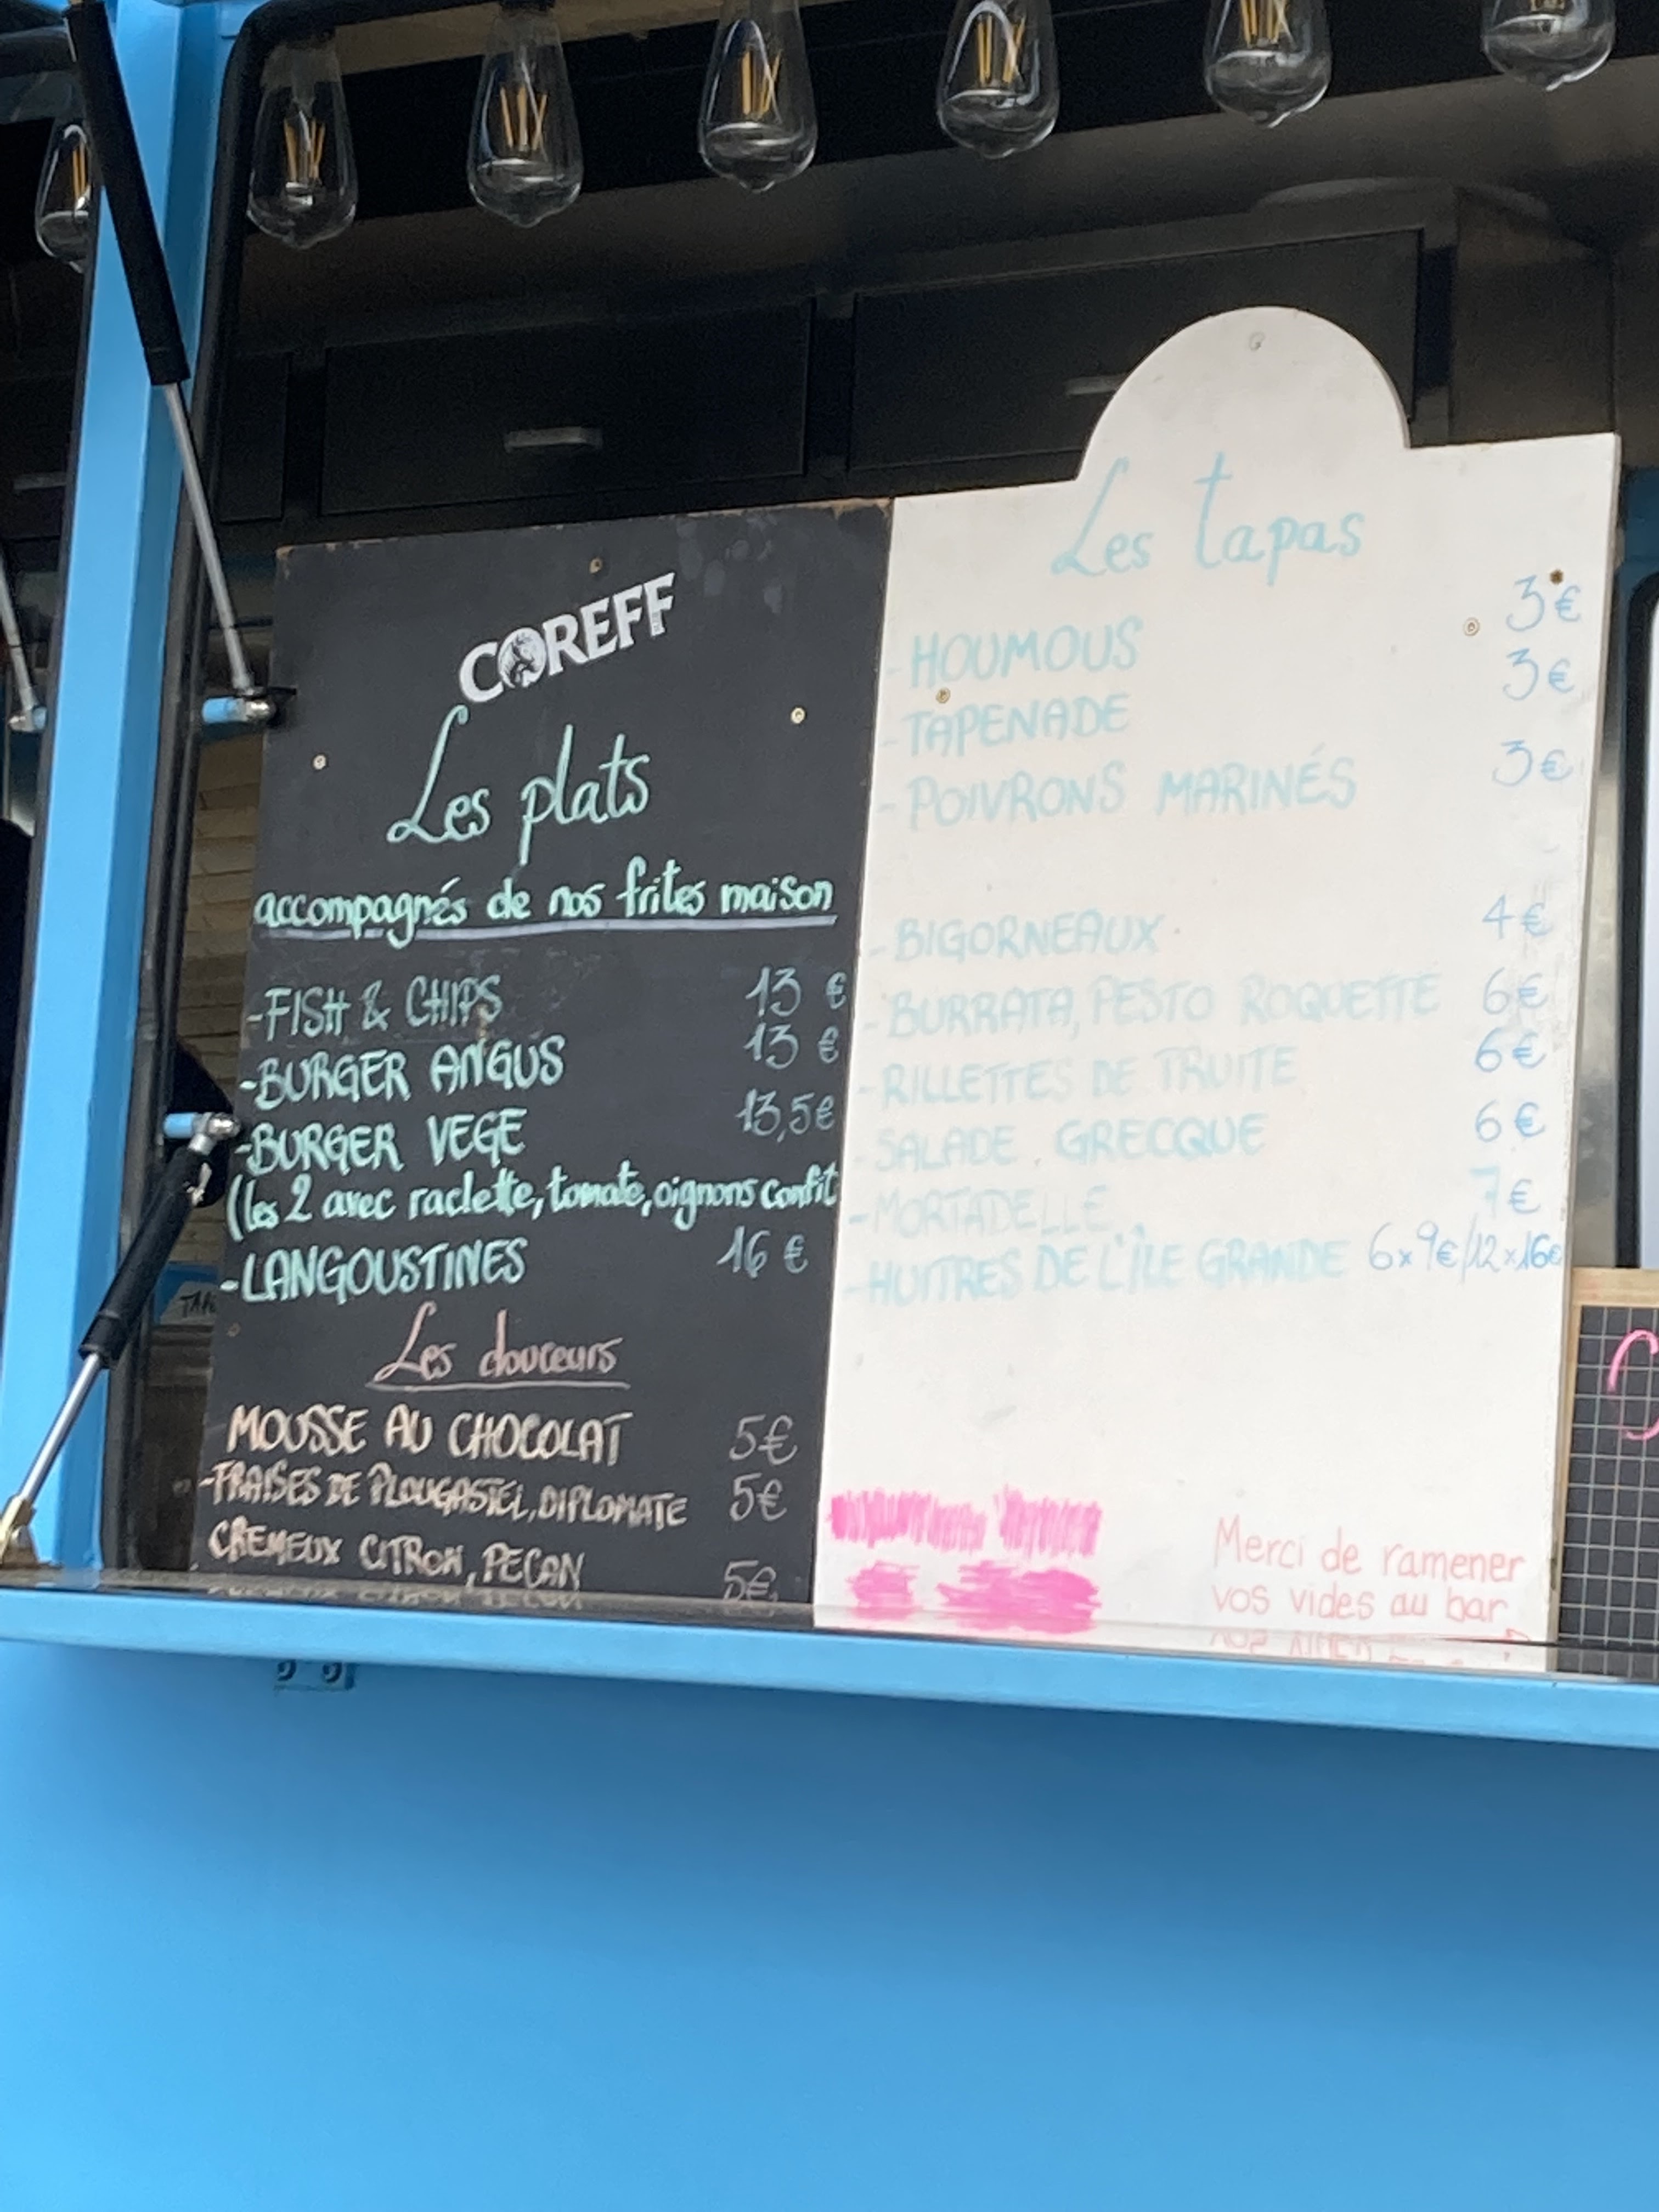 COREFF
Les plats
accompagnés de nos frites maison
-FISH & CHIPS 13 €
-BURGER ANGUS 13 €
-BURGER VEGE 13,5€
(les 2 avec raclette, tomate, oignons confit
-LANGOUSTINES 16 €
Les douceurs
MOUSSE AU CHOCOLAT 5€
-FRAISES DE PLOUGASTEL, DIPLOMATE 5€
CREMEUX CITRON, PECAN 5€
Les tapas
-HOUMOUS 3€
-TAPENADE 3€
-POIVRONS MARINÉS 3€
-BIGORNEAUX 4€
-BURRATA, PESTO ROQUETTE 6€
-RILLETTES DE TRUITE 6€
-SALADE GRECQUE 6€
-MORTADELLE 7€
-HUITRES DE L'ÎLE GRANDE 6x9€/12x16€
Merci de ramener
vos vides au bar